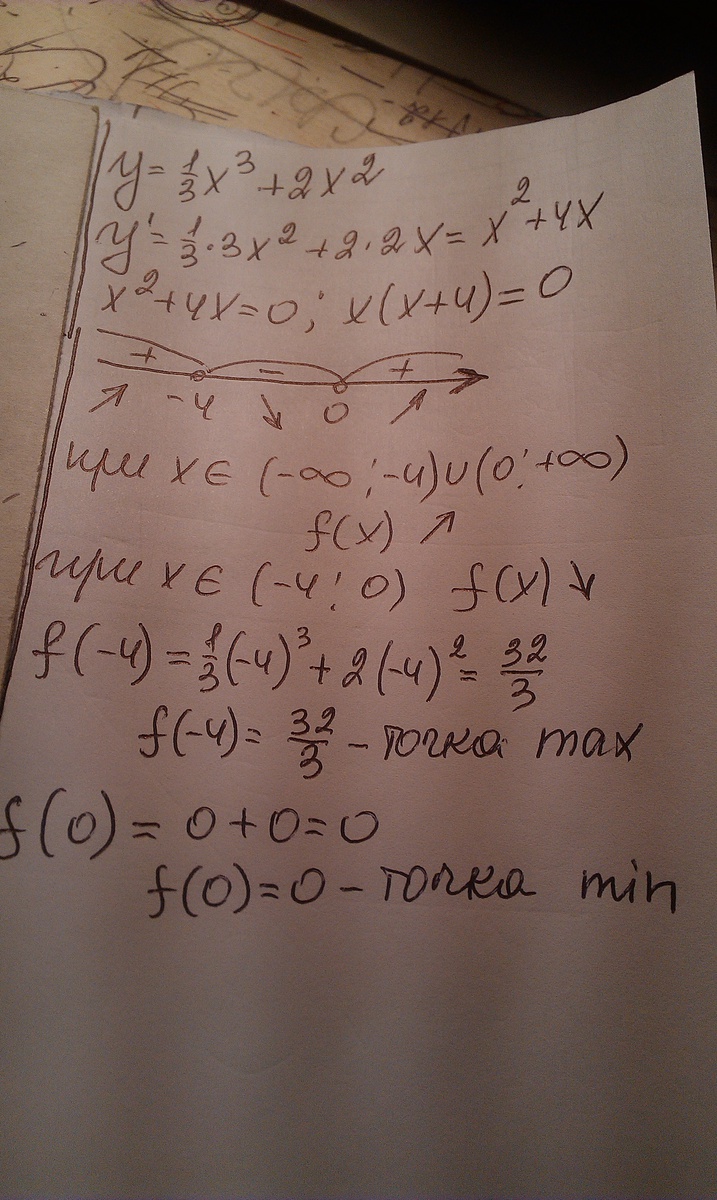 y = 1/3 x³ + 2x²
y' = 1/3 · 3x² + 2 · 2x = x² + 4x
x² + 4x = 0; x(x+4) = 0
+ − +
↗ -4 ↘ 0 ↗
при x ∈ (-∞; -4) ∪ (0; +∞)
f(x) ↗
при x ∈ (-4; 0) f(x) ↘
f(-4) = 1/3 (-4)³ + 2(-4)² = 32/3
f(-4) = 32/3 – точка max
f(0) = 0 + 0 = 0
f(0) = 0 – точка min